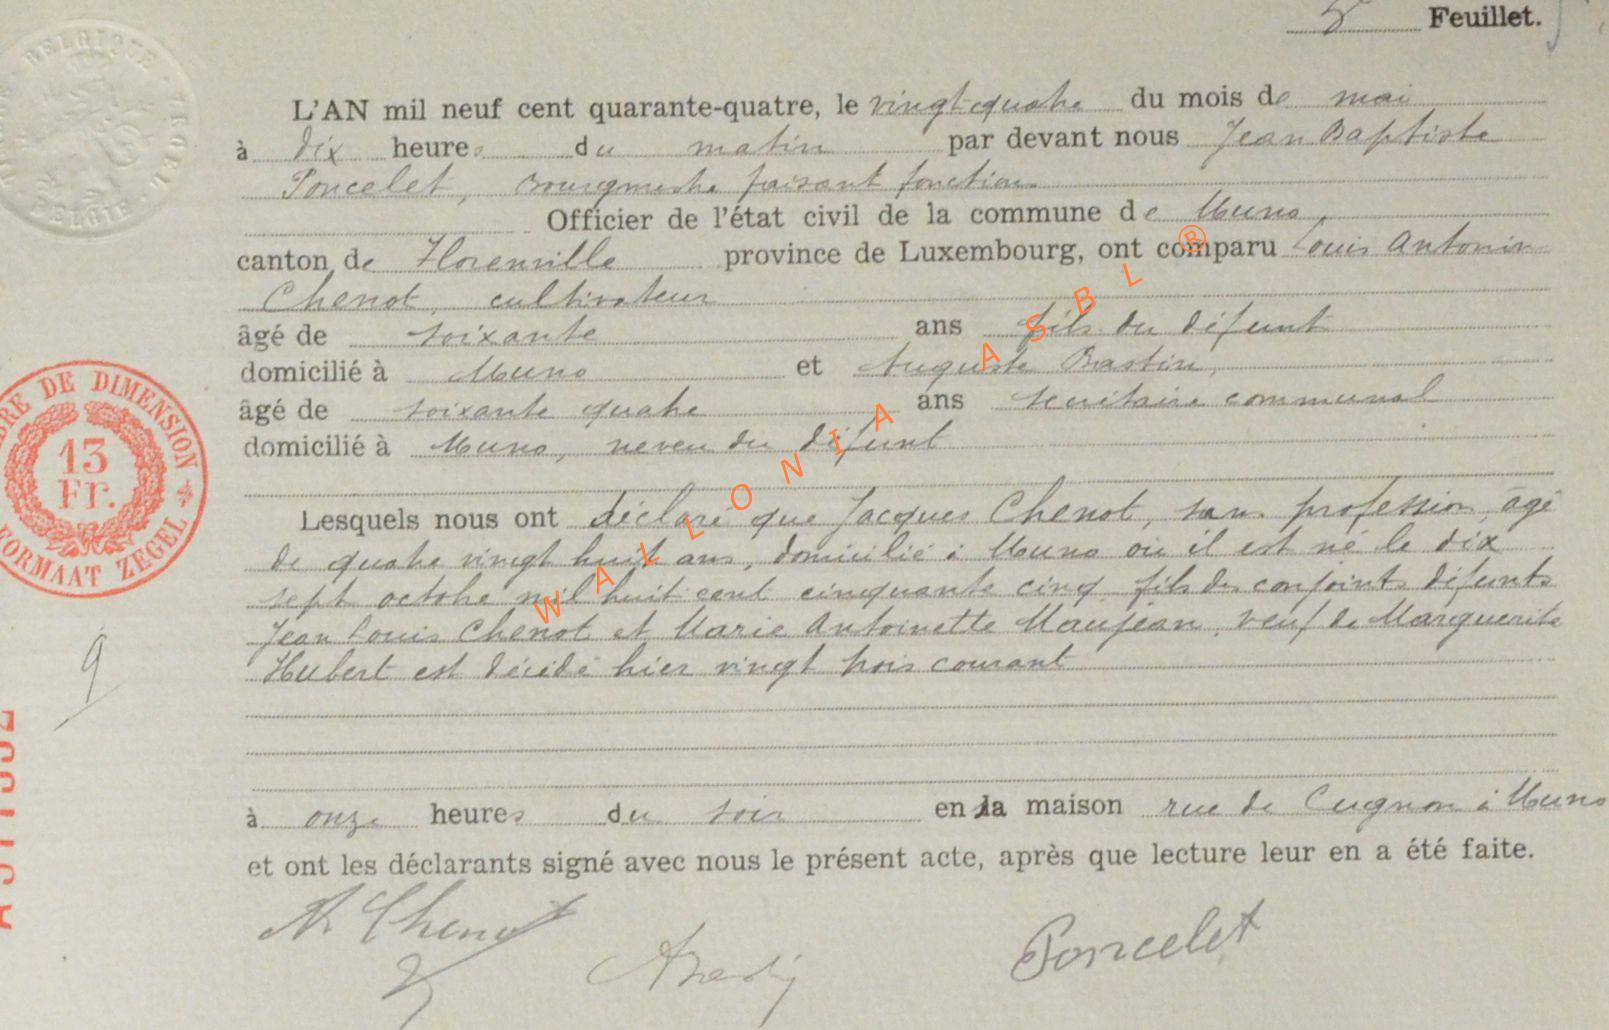 5e Feuillet.
BELGIQUE
BELGIË
L'AN mil neuf cent quarante-quatre, le vingt-quatre du mois de mai
à dix heures du matin par devant nous Jean Baptiste
Poncelet, Bourgmestre faisant fonction
Officier de l'état civil de la commune de Muno,
canton de Florenville province de Luxembourg, ont comparu Louis Antonin
Chenot, cultivateur
âgé de soixante ans fils du défunt
domicilié à Muno et Auguste Bastin,
âgé de soixante quatre ans secrétaire communal
domicilié à Muno, neveu du défunt
Lesquels nous ont déclaré que Jacques Chenot, sans profession, âgé
de quatre vingt huit ans, domicilié à Muno où il est né le dix
sept octobre mil huit cent cinquante cinq, fils des conjoints défunts
Jean Louis Chenot et Marie Antoinette Maujean, veuf de Marguerite
Hubert est décédé hier vingt trois courant
à onze heures du soir en la maison rue de Cugnon à Muno
et ont les déclarants signé avec nous le présent acte, après que lecture leur en a été faite.
A Chenot
Poncelet
BRE DE DIMENSION
13
Fr.
FORMAAT ZEGEL
9
WALLONIA ASBL ®